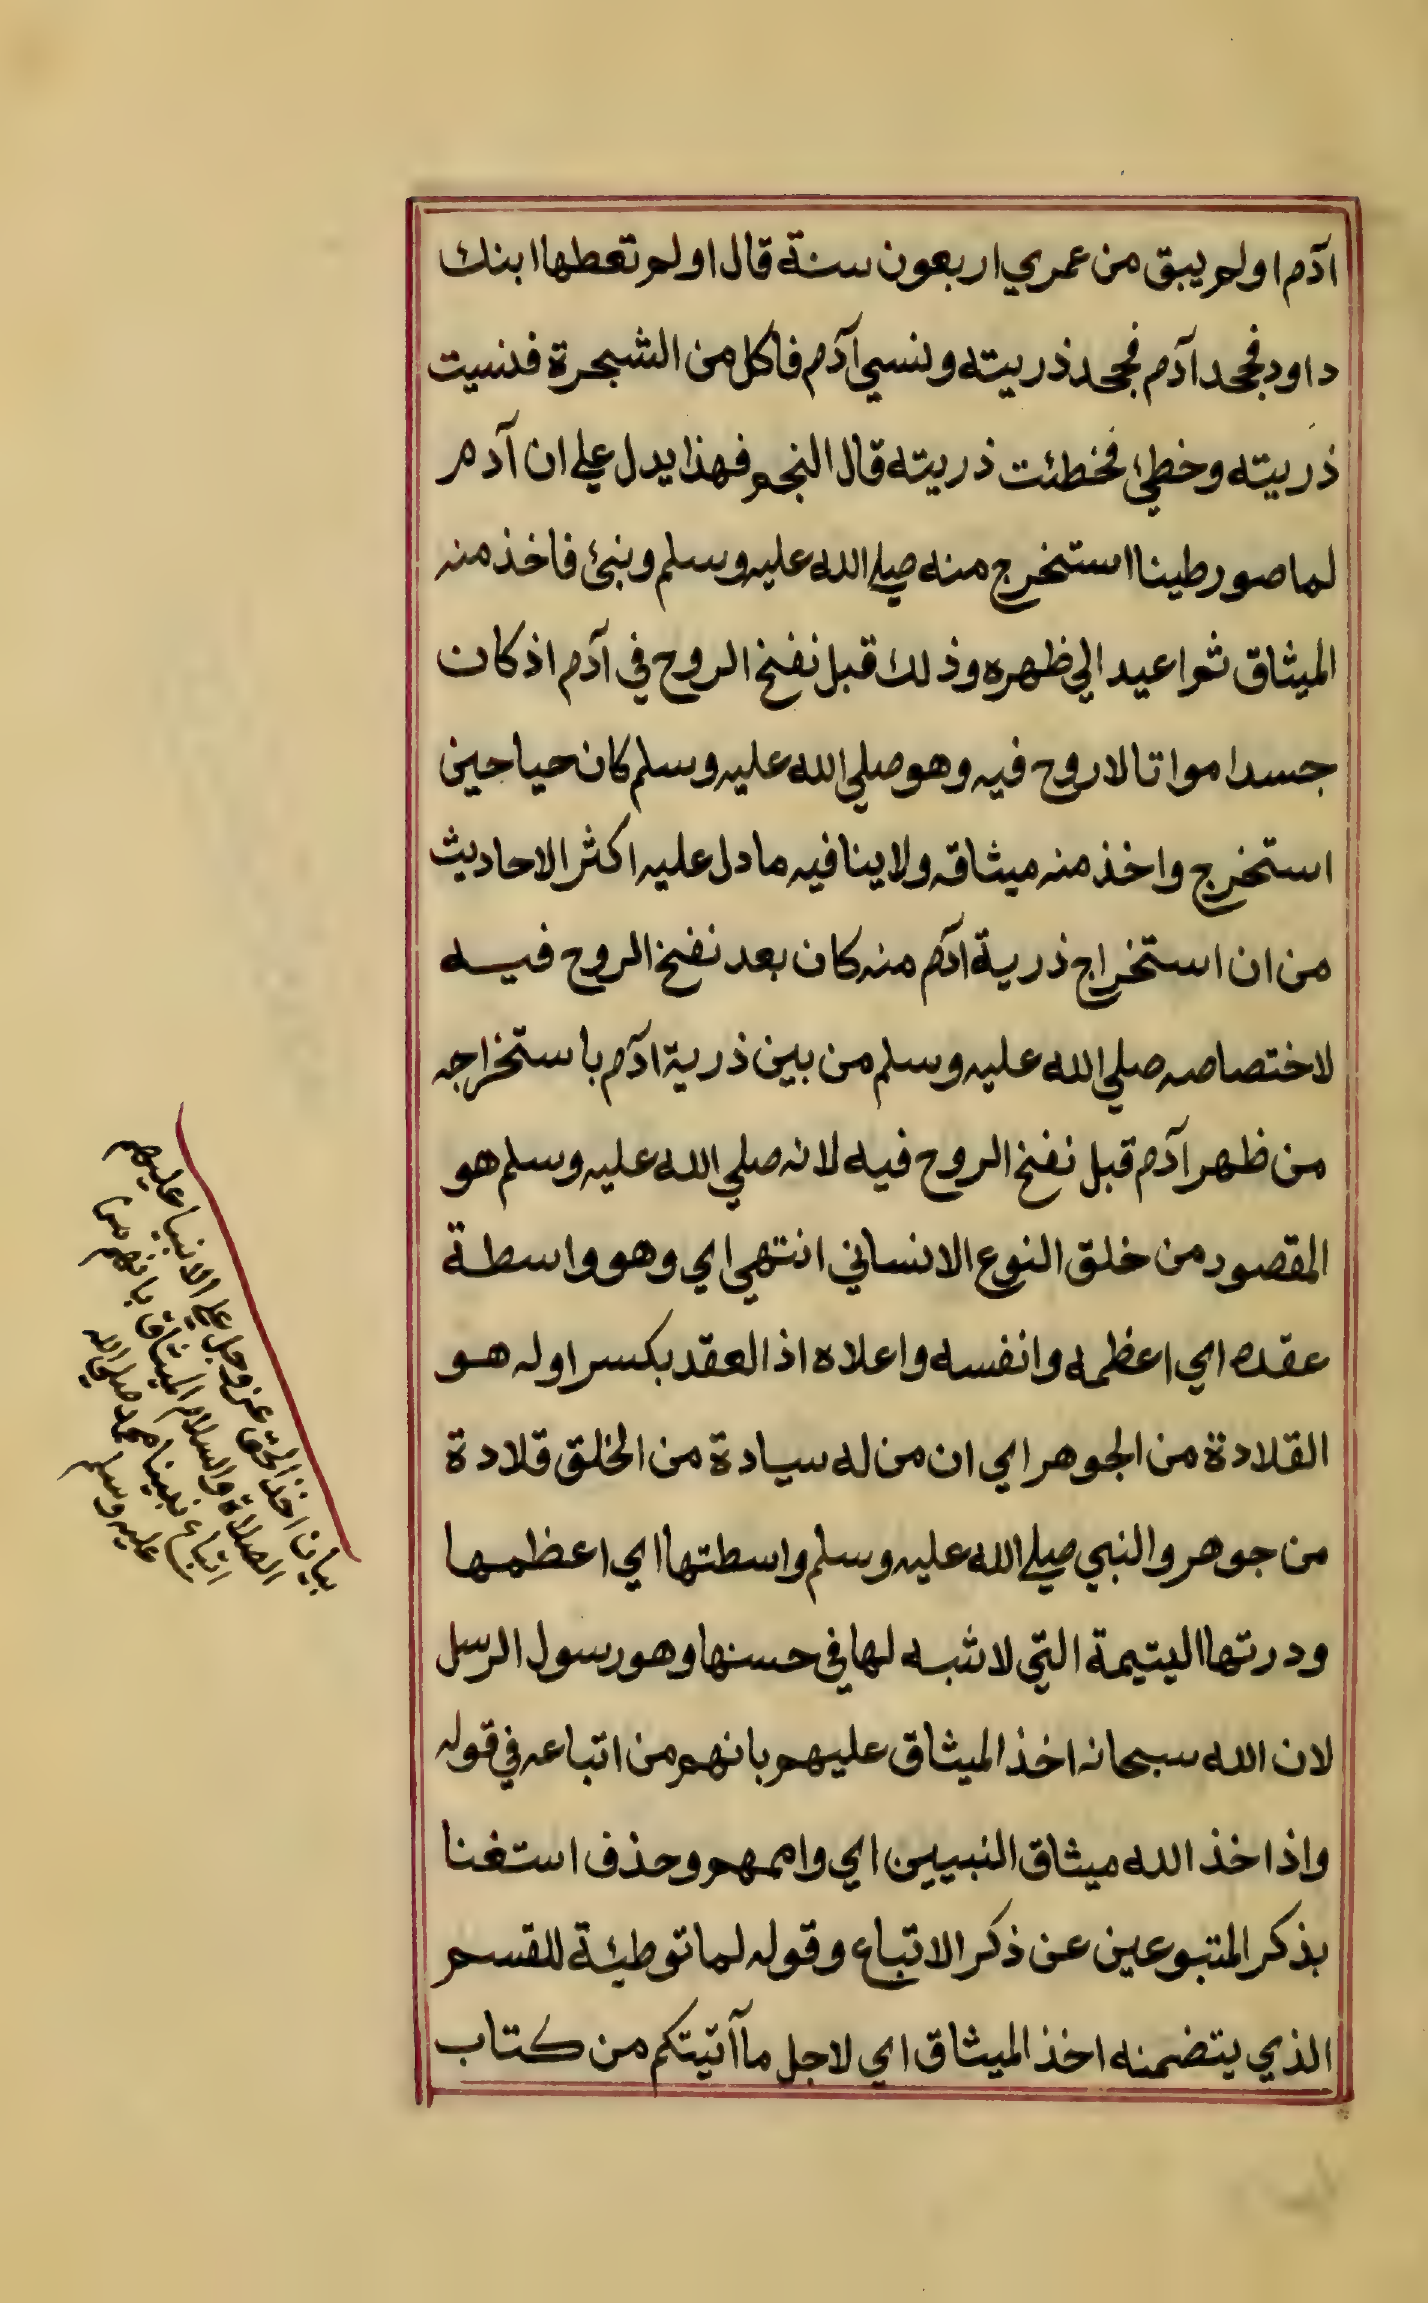 ادٓم اولم يبق من عمري اربعون سنة قال اولم تعطها ابنك
داود فجحد آدم فجحد ذريته ونسي آدم فاكل من الشجرة فنسيت
ذريته وخطئ فخطئت ذريته قال النجم فهذا يدل علي ان آدم
لما صور طينا استخرج منه صلى الله عليه وسلم ونبئ فاخذ منه
الميثاق ثم اعيد الي ظهره وذلك قبل نفخ الروح في آدم اذ كان
جسدا مواتا لا روح فيه وهو صلي الله عليه وسلم كان حيا حين
استخرج واخذ منه ميثاقه ولا ينافيه ما دل عليه اكثر الاحاديث
من ان استخراج ذرية ادٓم منه كان بعد نفخ الروح فيه
لاختصاصه صلي الله عليه وسلم من بين ذرية ادٓم باستخراجه
من ظهر آدم قبل نفخ الروح فيه لانه صلي الله عليه وسلم هو
المقصود من خلق النوع الانساني انتهي اي وهو واسطة
عقده اي اعظمه وانفسه واعلاه اذ العقد بكسر اوله هو
القلادة من الجوهر اي ان من له سيادة من الخلق قلادة
من جوهر والنبي صلى الله عليه وسلم واسطتها اي اعظمها
ودرتها اليتيمة التي لا شبه لها في حسنها وهو رسول الرسل
لان الله سبحانه اخذ الميثاق عليهم بانهم من اتباعه في قوله
واذ اخذ الله ميثاق النبيين اي واممهم وحذف استغنا
بذكر المتبوعين عن ذكر الاتباع وقوله لما توطئة للقسم
الذي يتضمنه اخذ الميثاق اي لاجل ما آتيتكم من كتاب
بيان اخذ الحق عز وجل علي الانبيا عليهم
الصلاة والسلام الميثاق بانهم من
اتباع نبينا محمد صلي الله
عليه وسلم